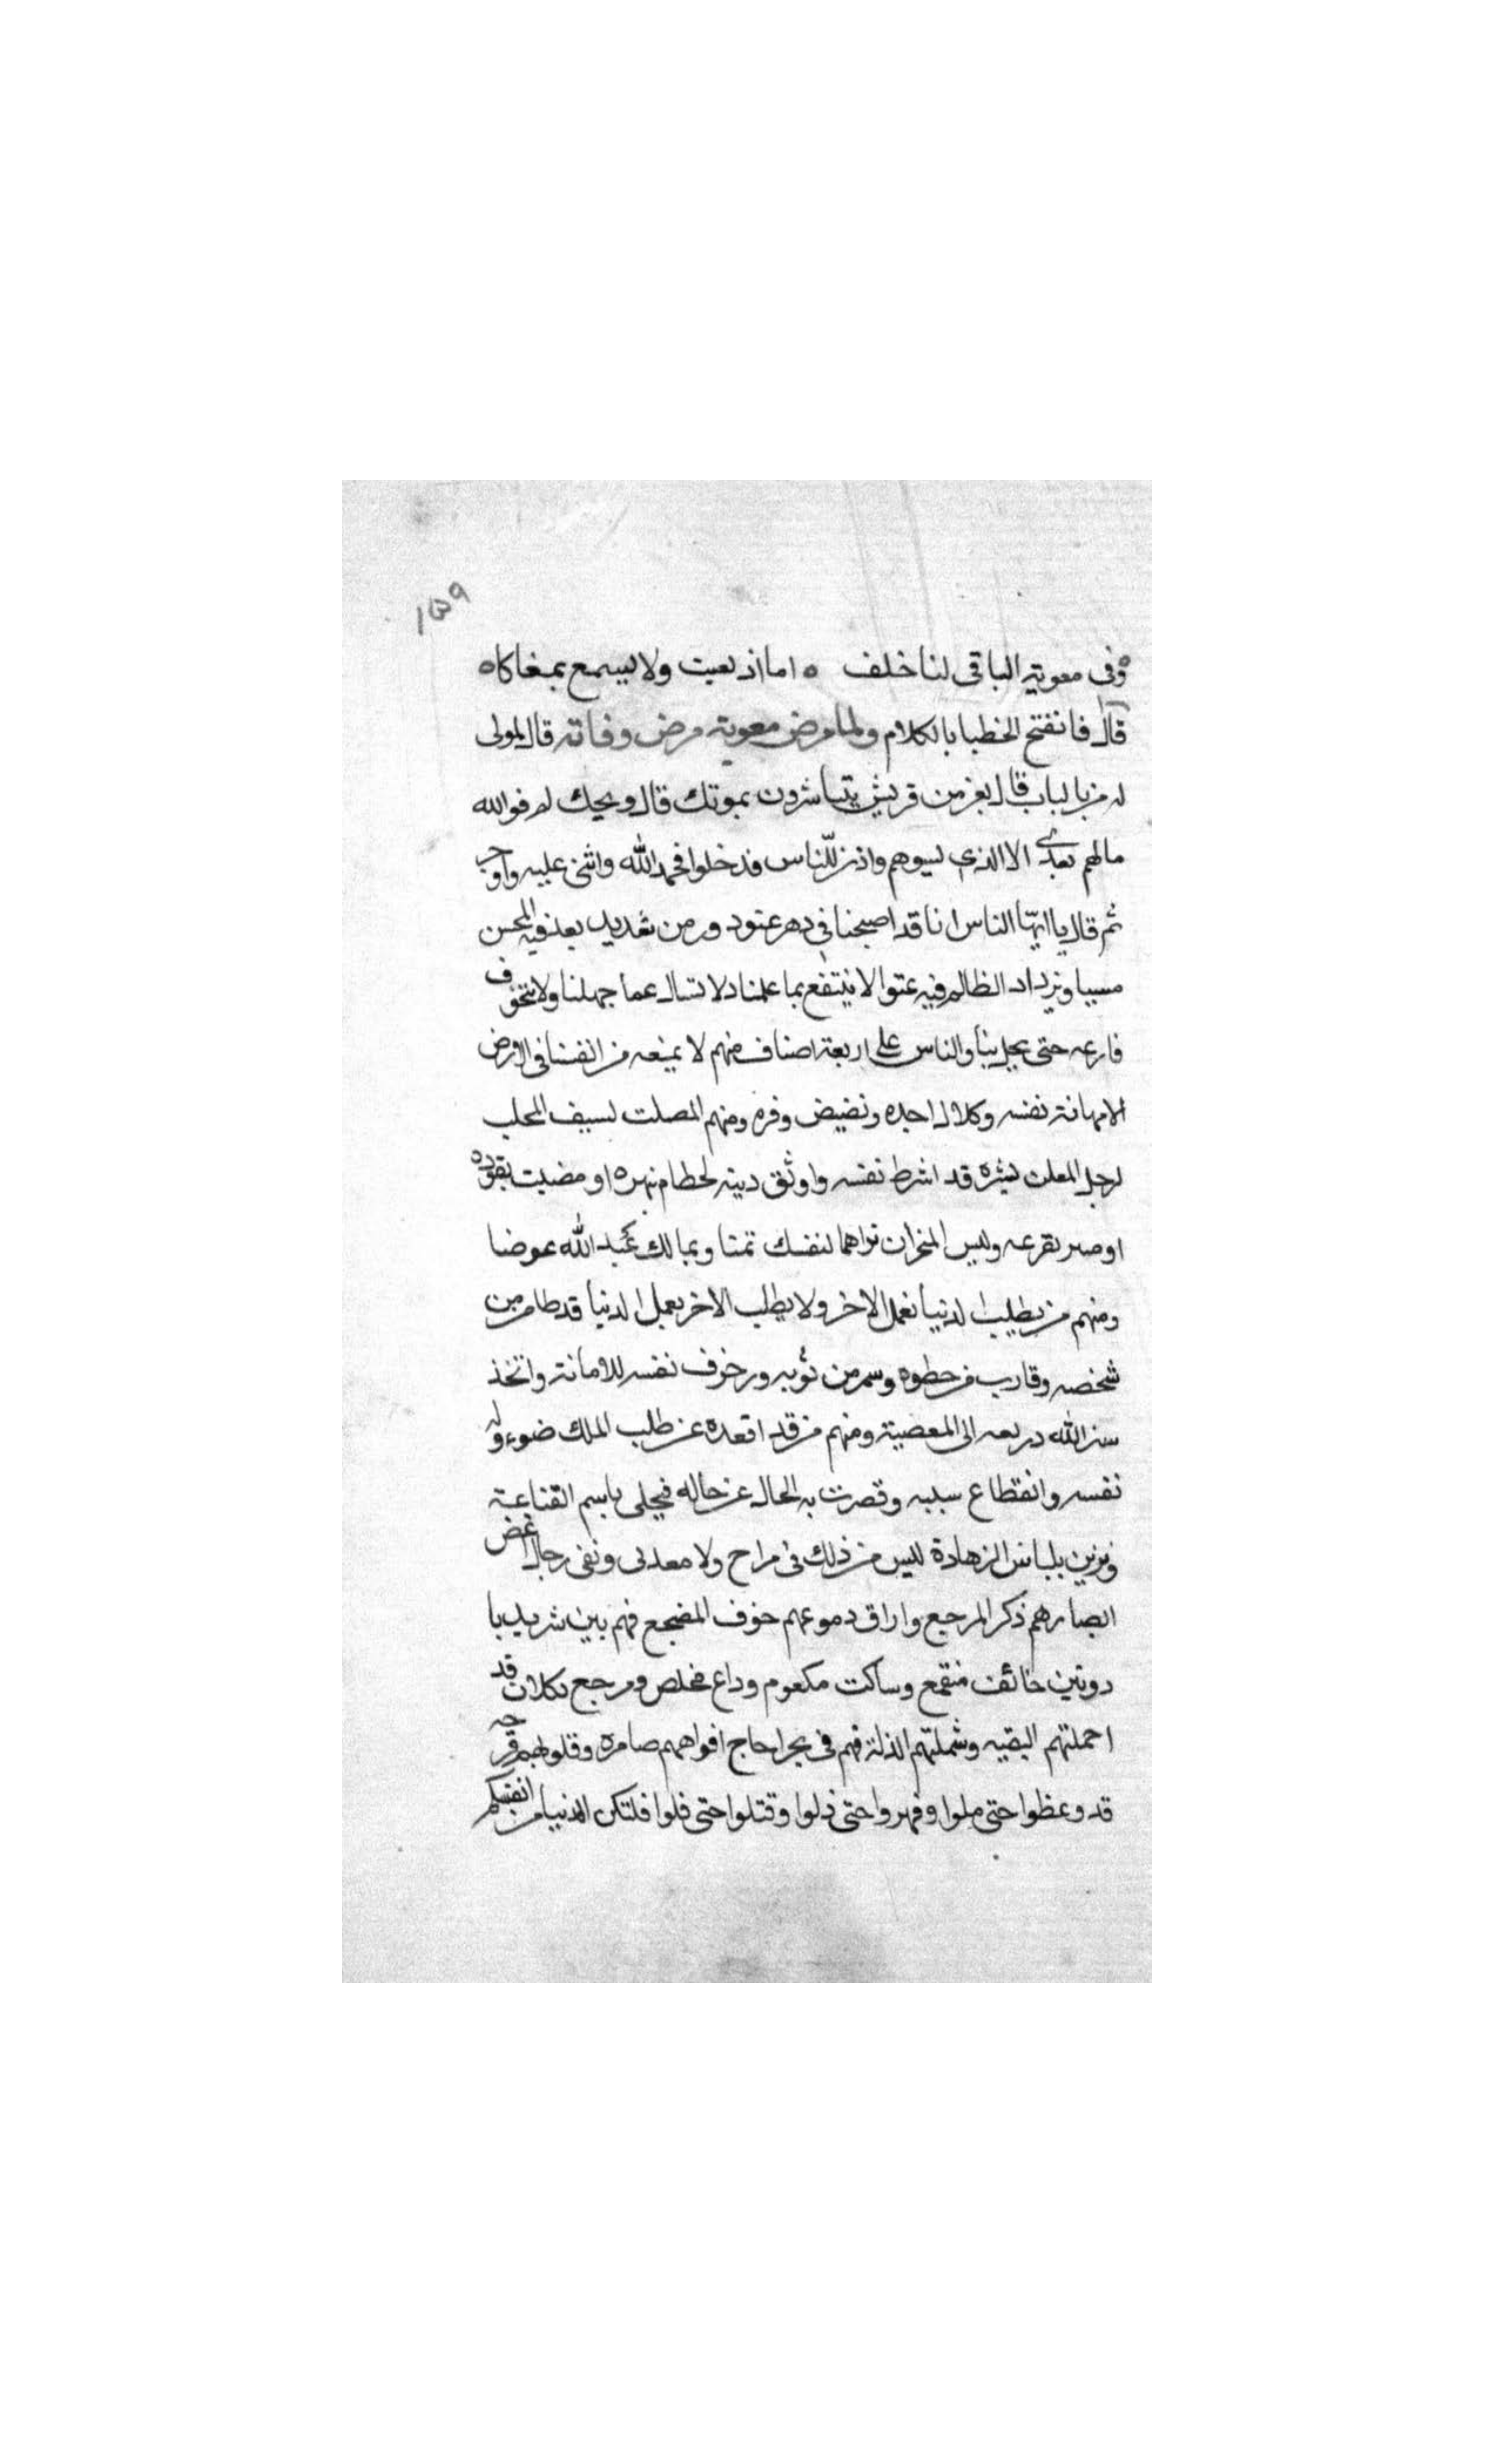 ١٥٩
وفى معوية الباقى لنا خلف ه اما اذ نعيت ولا يسمع بمغاكاه
قال فانفتح الخطبا بالكلام ولما مرض معوية مرض وفاته قال لمولى
له من بالباب قال نعز من قريش يتباشرون بموتك قال ويحك لم فوالله
مالهم بعدى الا الذى يسوهم واذن للناس فدخلوا فحمد الله واثنى عليه واوجب
ثم قال يا ايها الناس انا قد اصبحنا فى دهر عنود وزمن شديد يعد فيه المحسن
مسييا ويزداد الظالم فيه عتوا لا ينتفع بما علمنا ولا نسال عما جهلنا ولا نتخوف
قارعه حتى يحل بنا والناس على اربعة اصناف منهم لا يمنعه من انفسنا فى الارض
الا مهانة نفسه وكلال احده ونضيض وفره ومنهم المصلت لسيف المجلب
لرجل المعلن بشره قد اشرط نفسه واوثق دينه لحطام نهره او مضيت بقوده
او صر يقرعه وليس المتجران تراهما لنفسك ثمنا وبمالك عند الله عوضا
ومنهم من يطلب الدنيا بعمل الاخر ولا يطلب الاخر بعمل الدنيا قد طامن من
شخصه وقارب من خطوه وسمر من ثوبه وزخرف نفسه للامانة واتخذ
ستر الله دريعه الى المعصية ومنهم من قد اقعده عن طلب الملك ضوءوله
نفسه وانقطاع سببه وقصرت به الحال عن حاله فيحلى باسم القناعة
وتزين بلباس الزهادة ليس من ذلك فى مراح ولا معدى ونفى رجال اغض
ابصارهم ذكر المرجع واراق دموعهم خوف المضجع فهم بين شريد با
دوبين خائف منقمع وساكت مكعوم وداع مخلص ومرجع نكلان قد
احملتهم البقيه وشملتهم الذلة فهم فى بحر اجاج افواههم صامره وقلوبهم قرحه
قد وعظوا حتى ملوا وقهروا حتى ذلوا وقتلوا حتى قلوا فلتكن الدنيا من انفسكم